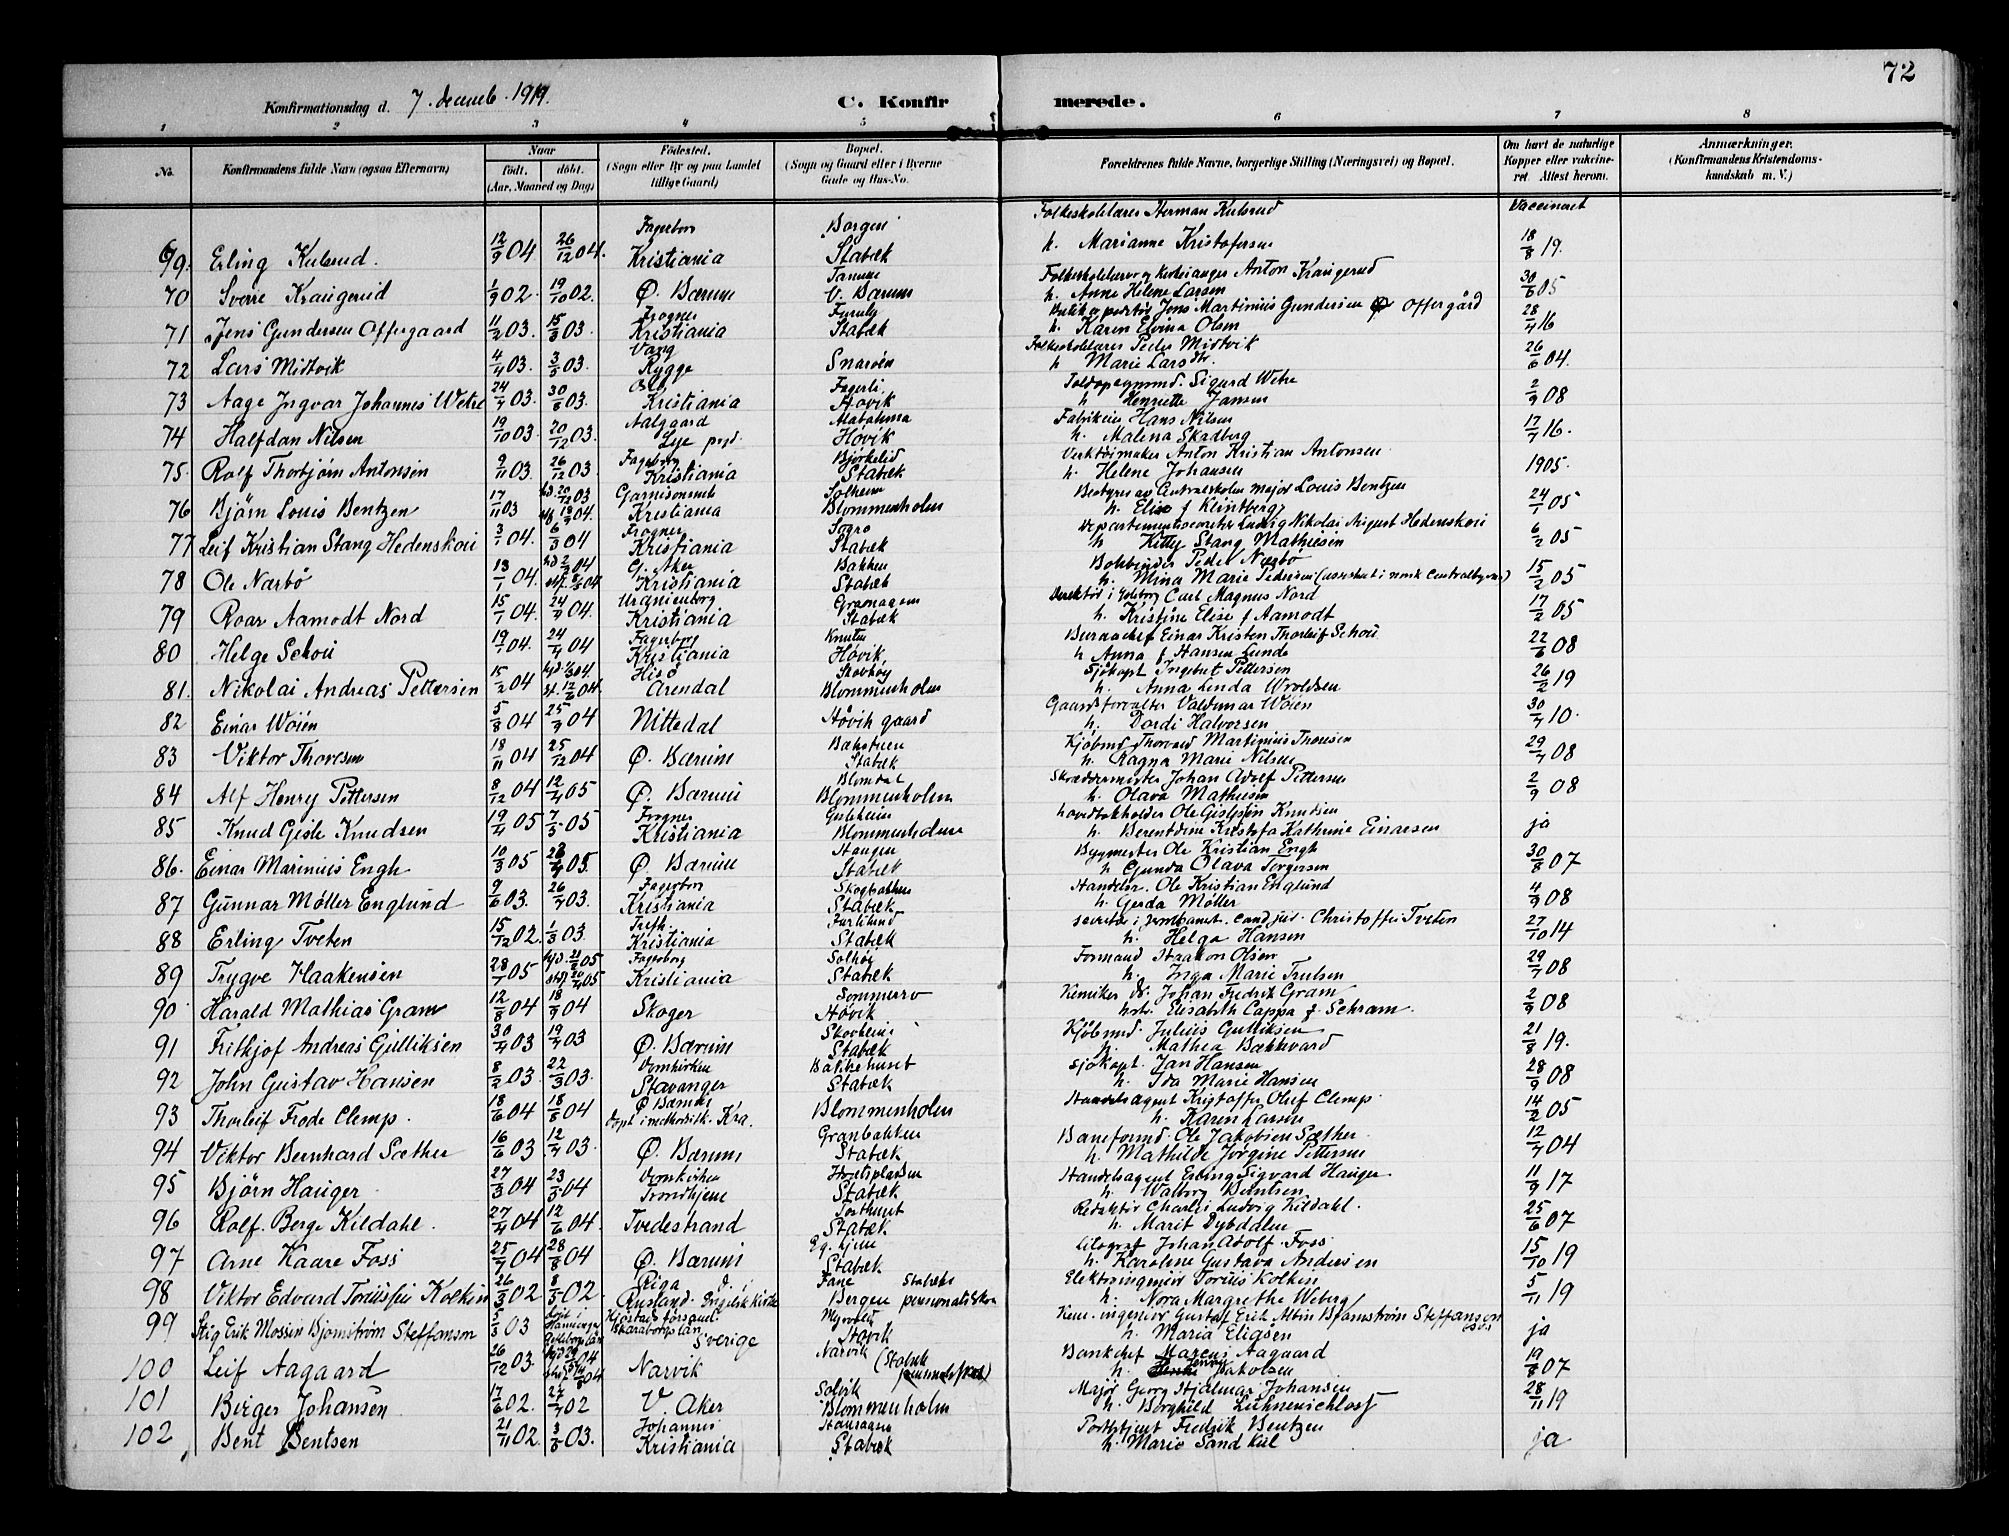 72
Konfirmationsdag d. 7. decemb. 1919.
C. Konfirmerede.
1 2 3 4 5 6 7 8
No. | Konfirmandens fulde Navn (ogsaa Efternavn) | Naar født. døbt. (Aar, Maaned og Dag) | Fødested. (Sogn eller By og paa Landet tillige Gaard) | Bopæl. (Sogn og Gaard eller i Byerne Gade og Hus-No.) | Forældrenes fulde Navne, borgerlige Stilling (Næringsvei) og Bopæl. | Om havt de naturlige Kopper eller vakcineret. Attest herom. | Anmærkninger. (Konfirmandens Kristendomskundskab m. V.)
Vaccineret
69. Erling Kulsrud. 12/9 04 26/12 04. Fagerborg Kristiania Borgen Stabæk Folkeskolelærer Herman Kulsrud h. Marianne Kristofersen 18/8 19.
70 Sverre Kraugerud 1/9 02. 19/10 02. Ø. Bærum Tanum V. Bærum Folkeskolelærer og kirkesanger Anton Kraugerud h. Anne Helene Larsen 30/6 05
71 Jens Gundersen Offergaard 11/2 03. 15/3 03. Frogner Kristiania Furuly Stabæk Jens Martinius Gundersen Offergård h. Karen Elvina Olsen 28/4 16
72 Lars Midtvik 4/4 03. 3/5 03. Vang Rygge Snarøen Folkeskolelærer Peder Midtvik h Marie Larsdtr. 26/6 04.
73 Aage Ingvar Johannes Wetre 24/7 03. 30/8 03. Oslo Kristiania Fagerli Høvik Sigurd Wetre h Henriette Jansen 2/9 08
74 Halfdan Nilsen 19/10 03. 20/12 03. Aalgaard Lye Høvik Hans Nilsen h. Malena Skadberg 17/7 16.
75. Rolf Thorbjørn Antonsen 9/11 03. 26/12 03. Fagerborg Kristiania Bjørkelid Stabæk Verktøimaker Anton Kristian Antonsen h. Helene Johansen 1905.
76 Bjørn Louis Bentzen 17/11 03 Garnisonsmh Kristiania Solheim Blommenholm Bestyrer av Centralskolen Major Louis Bentzen h. Elise f Klintberg 24/1 05
77 Leif Kristian Stang Hedenskou 3/1 04. 6/3 04 Frogner Kristiania Stabæk Departementssecretær Ludvig Nikolai August Hedenskou h Kitty Stang Mathiesen 6/2 05
78 Ole Nærbø 13/1 04. G. Aker Kristiania Bakken Stabæk Bokbinder Peder Nærbø h. Mina Marie Pedersen 15/2 05
79 Roar Aamodt Nord 15/1 04. 24/4 04. Uranienborg Kristiania Stabæk Direktør i Carl Magnus Nord h. Kristine Elise f Aamodt 17/2 05
80 Helge Schou 19/1 04. 24/4 04 Fagerborg Kristiania Knuten Høvik Bureauchef Einar Kristen Thorleif Schou h Anna f Hansen Lunde 22/6 08
81. Nikolai Andreas Pettersen 15/2 04 Hisø Arendal Skovhøy Blommenholm Sjøkapt Ingebret Pettersen h. Anna Linda Wroldsen 26/2 19
82 Einar Woien 5/8 04 25/9 04 Nittedal Høvik gaard Gaardsforvalter Valdemar Woien h. Dordi Halvorsen 30/7 10.
83 Viktor Thoresen 18/11 04 25/12 04 Ø. Bærum Bakstuen Stabæk Kjøbmd. Thorvald Martinius Thoresen h. Ragna Marie Nilsen 29/7 08
84 Alf Henry Pettersen 8/12 04 12/4 05 Ø. Bærum Blomdal Blommenholm Skræddermester Johan Adolf Pettersen h. Olava Mathiesen 2/9 08
85 Knud Gisle Knudsen 19/4 05 7/5 05 Frogner Kristiania Gisleheim Blommenholm hovedbokholder Ole Gislesøn Knudsen h. Berentdine Kristofa Kathrine Einarsen ja
86. Einar Marinius Engh 10/3 05 Ø. Bærum Haugen Stabæk Bygmester Ole Kristian Engh h Gunda Olava Torgersen 30/8 07
87 Gunnar Møller Englund 9/6 03. 26/7 03. Fagerborg Kristiania Skogbakken Stabæk Handelsr. Ole Kristian Englund h. Gerda Møller 4/9 08
88 Erling Tveten 15/12 02. 1/3 03. Trefh. Kristiania Furulund Stabæk cand jur. Christoffer Tveten h. Helga Hansen 27/10 14
89 Trygve Haakensen 28/1 05 Fagerborg Kristiania Solhøy Stabæk Formand Haakon Olsen h. Inga Marie Trulsen 29/7 08
90. Harald Mathias Gram 12/8 04 18/9 04 Skoger Sommerro Høvik Kemiker Dr. Johan Fredrik Gram h. Elisabeth Cappa f. Schram. 2/9 08
91 Fritkjof Andreas Gulliksen 30/4 03 19/7 03 Ø. Bærum Skovheim Stabæk Kjøbmd. Julius Gulliksen h. Mathea Bækkevard 21/8 19.
92 John Gustav Hansen 8/2 03. 22/3 03. Domkirken Stavanger Bakkehuset Stabæk Sjøkapt. Jan Hansen h. Ida Marie Hansen 28/9 08
93 Thorleif Frode Clemp. 18/6 04 18/8 04 Ø Bærum døpt i methodistk. Kra. Blommenholm Handelsagent Kristoffer Oluf Clemp. h. Karen Larsen 14/2 05
94 Viktor Bernhard Sæther 16/6 03 12/7 03. Ø. Bærum Granbakken Stabæk Baneformd. Ole Jakobsen Sæther h. Mathilde Jørgine Pettersen 12/7 04
95 Bjørn Hauger 27/3 04 23/5 04 Domkirken Trondhjem Stabæk Handelsagent Erling Sigvard Hauger h. Walborg Bentsen 11/9 17
96 Rolf Berge Kildahl. 27/4 04 12/6 04. Tvedestrand Stabæk Redaktør Charles Ludvig Kildahl. h. Marit Dybdalen 25/6 07
97 Arne Kaare Foss 25/7 04 28/8 04 Ø. Bærum Eg. hjem Stabæk Litograf Johan Adolf Foss h. Karoline Gustava Andersen 15/10 19
98 Viktor Edvard Toriussen Kolkin 26/3 02 8/5 02. Riga Rusland. Engelsk Kirke Fane Bergen Stabæks pensionatskole Elektroingeniør Torius Kolkin h. Nora Margrethe Weberg 5/11 19
99 Stig Erik Mossin Bjørnstrøm Steffanson 5/5 03 Skaraborgs län Sverige Myrvold Høvik Kem. ingeniør Gustaf Erik Albin Bjørnstrøm Steffanson h. Maria Eliason ja
100 Leif Aagaard 26/12 03. Narvik Narvik (Stabæk Bankchef Marcus Aagaard h. Jenny Jakobsen 19/8 07
101 Birger Johansen 17/6 02. 27/7 02 V. Aker Solvik Blommenholm Major Georg Hjalmar Johansen h. Borghild Lühnenschloss 28/11 19
102 Bent Bentsen 21/11 02. 3/5 03. Johannes Kristiania Haugen Stabæk Fredrik Bentzen h. Marie Sand Kiil ja